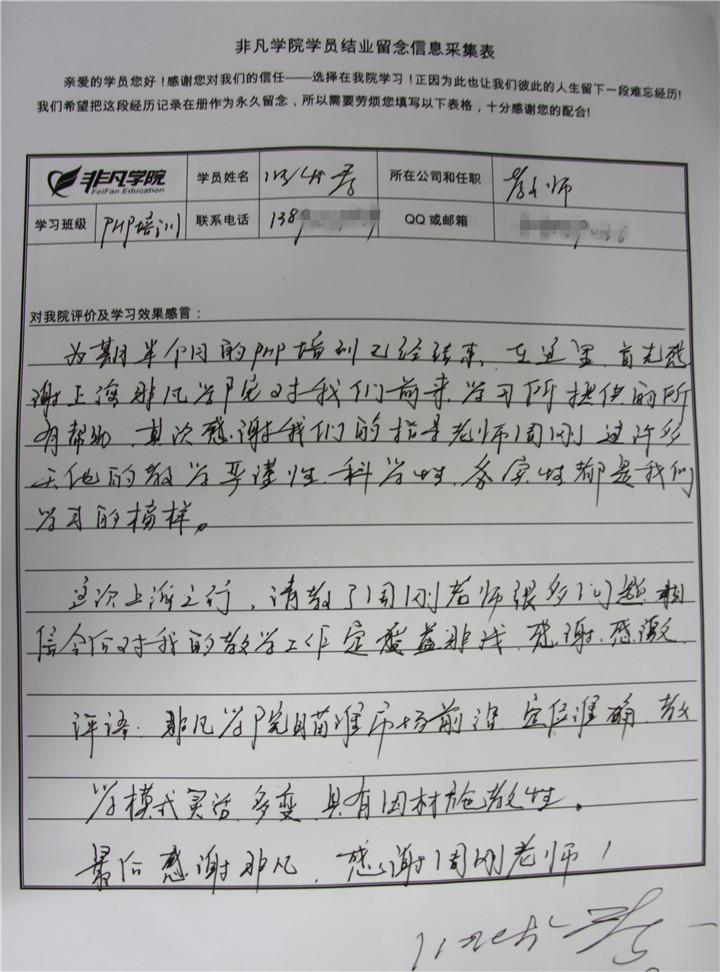 非凡学院学员结业留念信息采集表
亲爱的学员您好！感谢您对我们的信任——选择在我院学习！正因为此也让我们彼此的人生留下一段难忘经历！
我们希望把这段经历记录在册作为永久留念，所以需要劳烦您填写以下表格，十分感谢您的配合！
非凡学院 学员姓名 所在公司和任职 教师
FeiFan Education
学习班级 PHP培训 联系电话 138 QQ 或邮箱
对我院评价及学习效果感言：
为期半个月的PHP培训已经结束，在这里，首先感
谢上海非凡学院对我们前来学习所提供的所
有帮助，其次感谢我们的指导老师周刚，这许多
天他的教学严谨性、科学性、务实性都是我们
学习的榜样。
这次上海之行，请教了周刚老师很多问题，相
信今后对我的教学工作定受益非浅，感谢、感激
评语：非凡学院瞄准市场前沿，定位准确，教
学模式灵活、多变，具有因材施教性。
最后感谢非凡，感谢周刚老师！